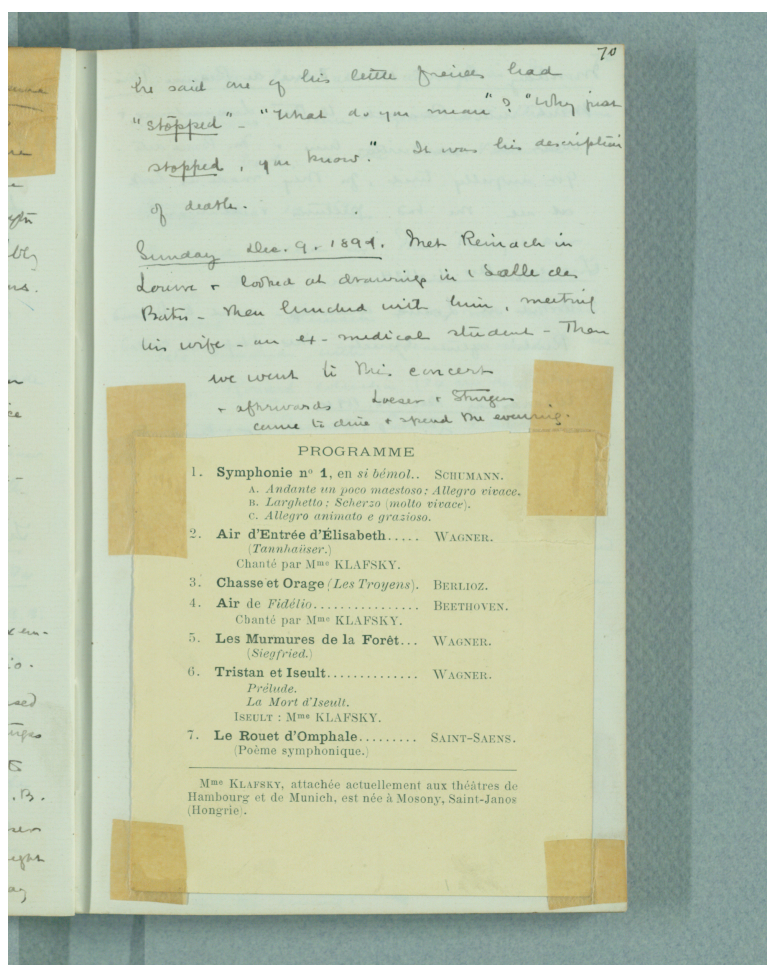 70
he said one of his little friends had
"stopped" - "What do you mean"? "Why just
stopped, you know." It was his description
of death.
Sunday Dec. 9. 1894. Met Reinach in
Louvre + looked at drawings in Salle des
Boîtes - Then lunched with him, meeting
his wife - an ex-medical student - Then
we went to this concert
+ afterwards Loeser + Sturges
came to dine + spend the evening.
PROGRAMME
1. Symphonie nº 1, en si bémol.. SCHUMANN.
A. Andante un poco maestoso; Allegro vivace.
B. Larghetto; Scherzo (molto vivace).
C. Allegro animato e grazioso.
2. Air d'Entrée d'Élisabeth..... WAGNER.
(Tannhaüser.)
Chanté par Mme KLAFSKY.
3. Chasse et Orage (Les Troyens). BERLIOZ.
4. Air de Fidélio................ BEETHOVEN.
Chanté par Mme KLAFSKY.
5. Les Murmures de la Forêt... WAGNER.
(Siegfried.)
6. Tristan et Iseult.............. WAGNER.
Prélude.
La Mort d'Iseult.
ISEULT : Mme KLAFSKY.
7. Le Rouet d'Omphale......... SAINT-SAENS.
(Poème symphonique.)
Mme KLAFSKY, attachée actuellement aux théâtres de
Hambourg et de Munich, est née à Mosony, Saint-Janos
(Hongrie).